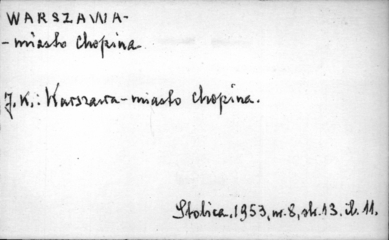 WARSZAWA-
- miasto Chopina
J. K.: Warszawa - miasto Chopina.
Stolica. 1953, nr. 8, str. 13. il. 11.